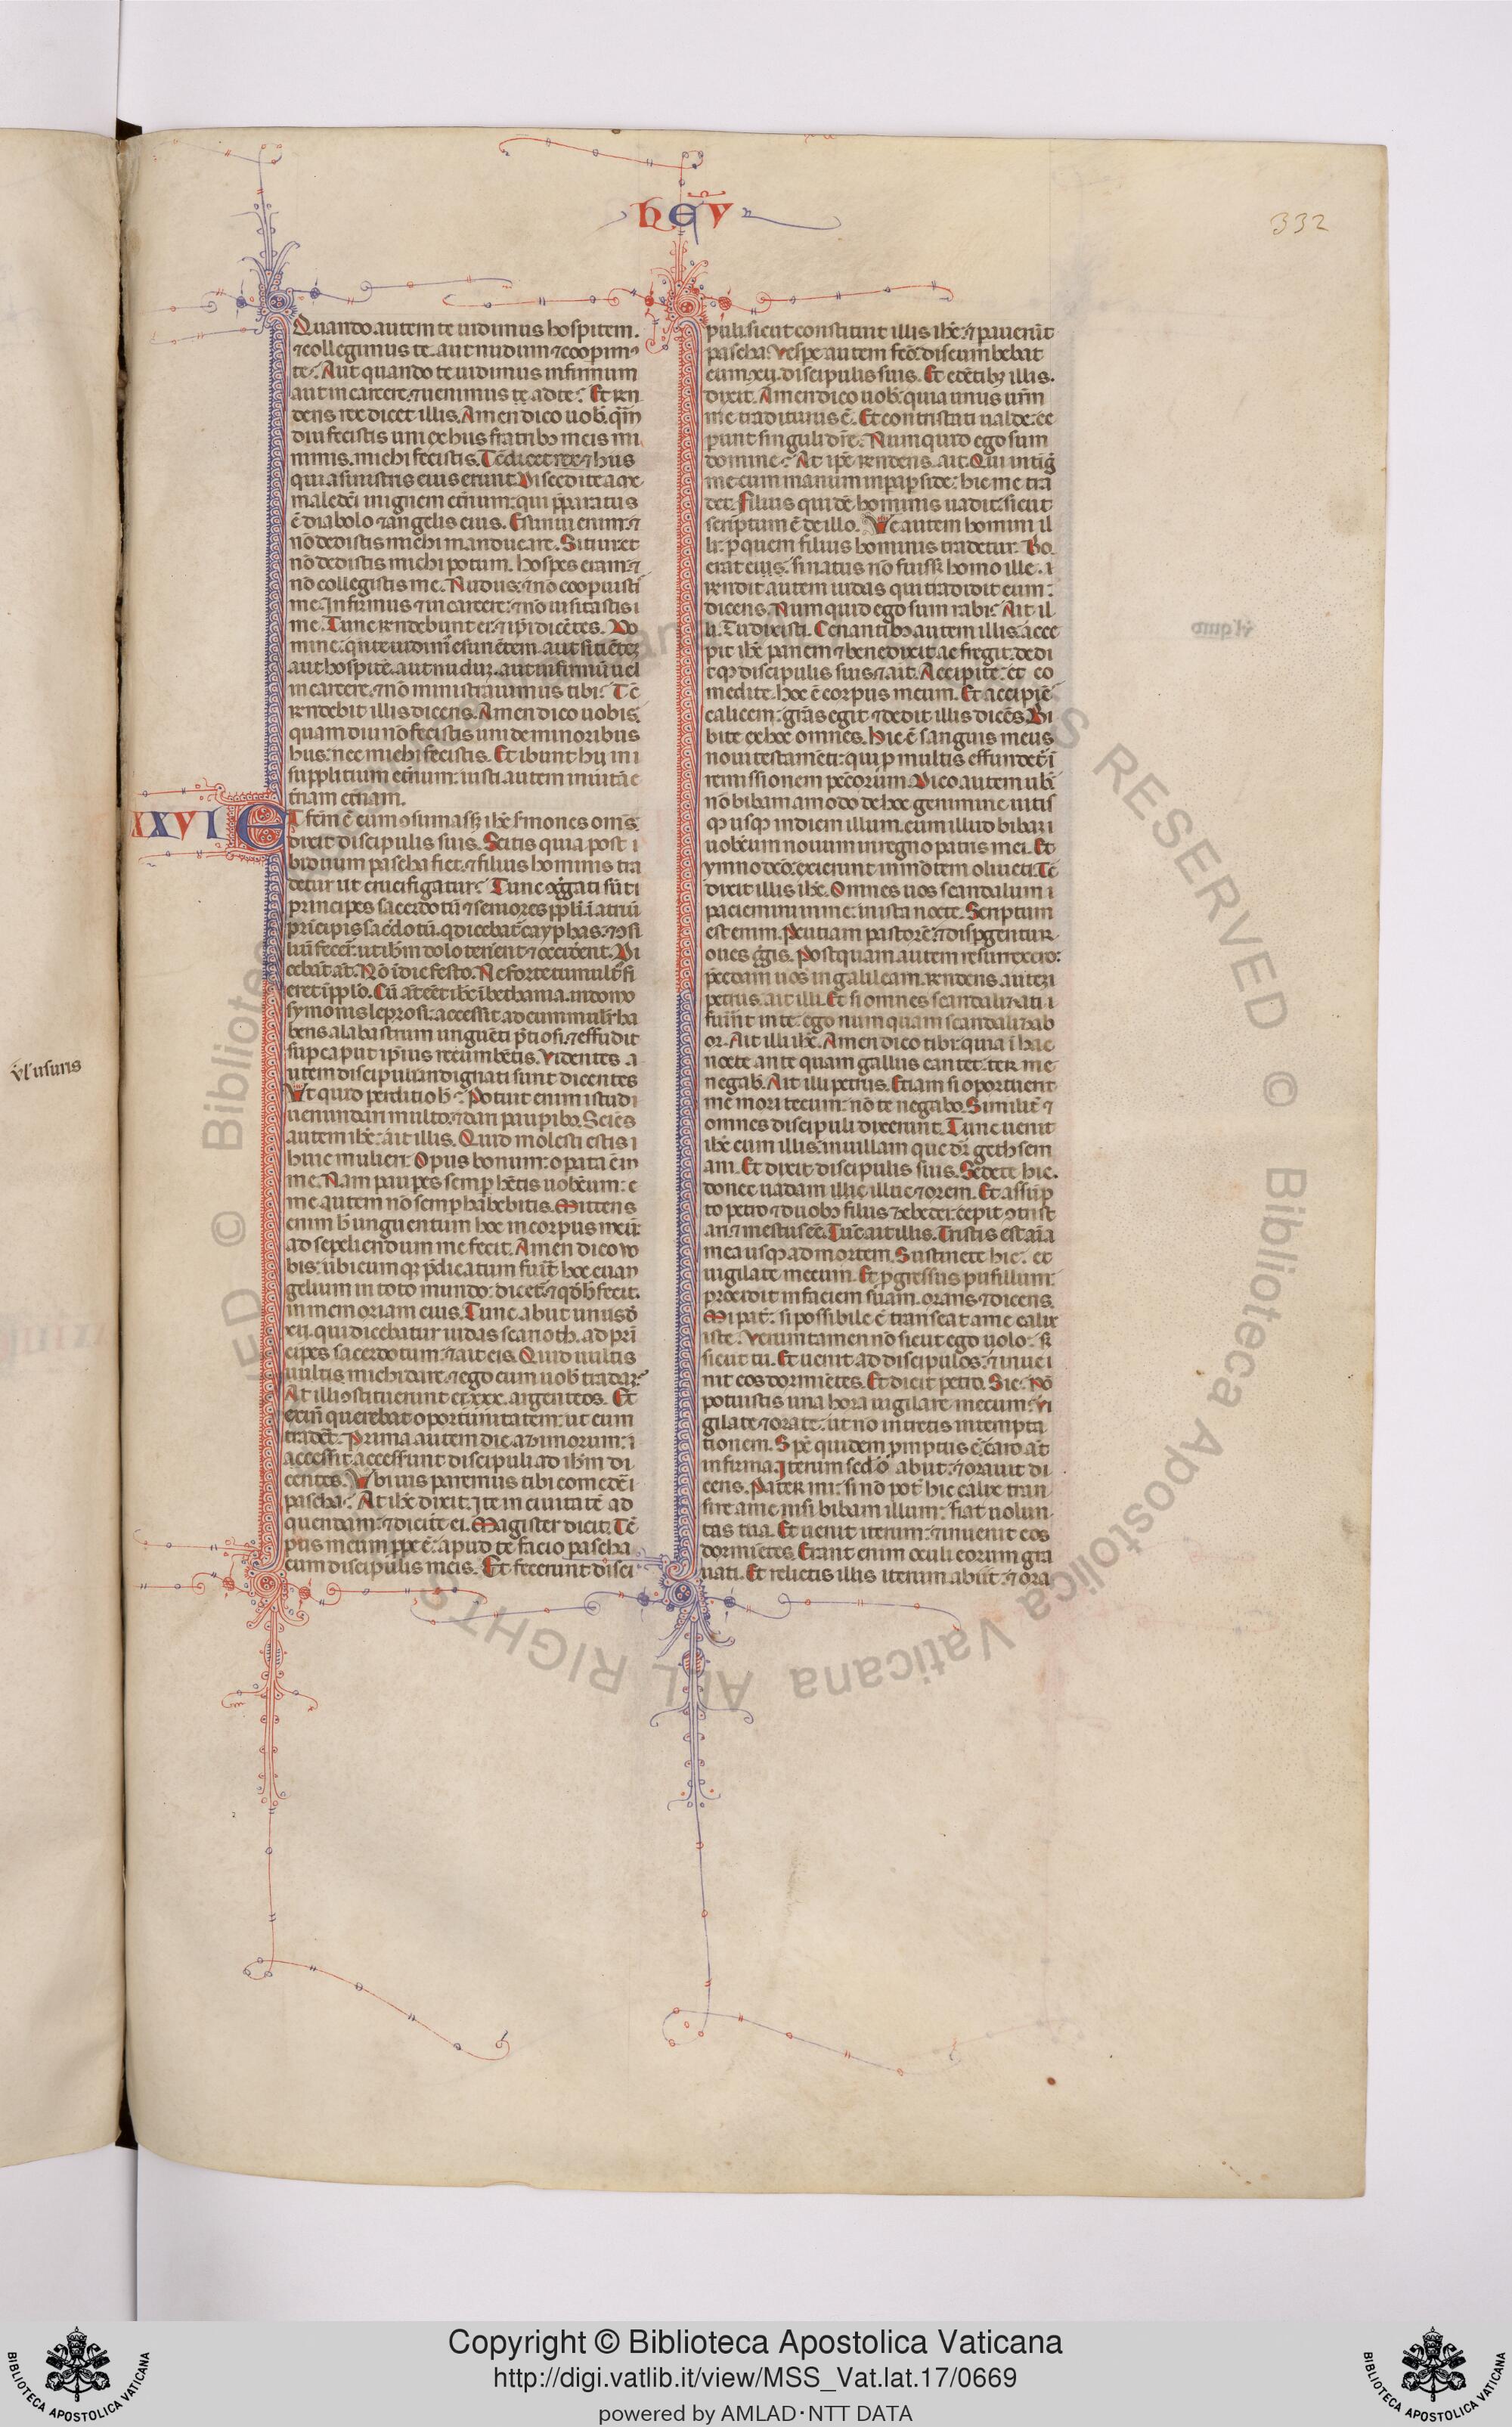 heꝰ
332
Quando autem te uidimus hospitem.
⁊ collegimus te. aut nudum ⁊ coopuim⁹
te? Aut quando te uidimus infirmum
aut in carcere. ⁊ uenimus te ad te? Et rn̄
dens rex dicet illis. Amen dico uob̄. qm̄
diu fecistis uni ex hus fratribꝫ meis mi
nimis. michi fecistis. Tc̄ dicet rex ⁊ hus
qui a sinistris eius erunt. Discedite a me
maledc̄i in ignem etn̄um: qui p̄paratus
ē diabolo ⁊ angelis eius. Esuriui enim: ⁊
nō dedistis michi manducare. Sitiui: et
nō dedistis michi potum. hospes eram: ⁊
nō collegistis me. Nudus: ⁊ nō coopuisti
me. Infirmus ⁊ in carcere: ⁊ nō uisitastis i
me. Tunc rn̄debunt ei: ⁊ ip̄i dicētes. Do
mine. qn̄ te uidim̄ esurientem aut sitiētez
aut hospitē. aut nuduz. aut infirmū uel
in carcere. ⁊ nō ministrauimus tibi? Tc̄
rn̄debit illis dicens. Amen dico uobis.
quam diu nō fecistis uni de minoribus
hus: nec michi fecistis. Et ibunt hy in i
supplitium etn̄um: iusti autem in uitā e
tn̄am etn̄am.
XXVI
ET fcm̄ ē cum ɔsumass; ih̄c s̄mones om̄s.
dixit discipulis suis. Scitis quia post i
biduum pascha fiet. ⁊ filius hominis tra
detur ut crucifigatur? Tunc ɔg̃gati sūt i
principes sacerdotū ⁊ seniores pp̄li ī atriū
prīcipis sac̄dotū. q̇ dicebat̄ cayphas: ⁊ ɔsi
liū fecer̄t. ut ih̄m dolo ten̄ent. ⁊ occid̄ent. Di
cebāt at̄. Nō ī die festo. Ne forte tumult⁹ fi
eret ī pp̄lo. Cū at̄ eēt ih̄c ī bethania. in domo
symonis leprosi: accessit ad eum mulr̄ ha
bens alabastrum unguēti p̄tiosi. ⁊ effudit
sup caput ip̄ius recumbētis. Videntes a
utem discipuli indignati sunt dicentes
vl̄ usuris
Vt quid perditio h̄? Potuit enim istud i
uenundari multo. ⁊ dari paupibꝫ. Sciēs
autem ih̄c: ait illis. Quid molesti estis i
huic mulieri? Opus bonum: opata ē in
me. Nam paupes semp hētis uobēum: e
me autem nō semp habebitis. Mittens
enim h̄ unguentum hoc in corpus meū:
ad sepeliendum me fecit. Amen dico uo
bis: ubicumqꝫ p̄dicatum fuīt hoc euan
gelium in toto mundo: dicet̄. ⁊ qd̄ h̄ fecit.
in memoriam eius. Tunc abiit unus d̄
xij. qui dicebatur iudas scarioth. ad prī
cipes sacerdotum: ⁊ ait eis. Quid uultis
uultis michi dare. ⁊ ego eum uob̄ tradaz?
At illi ɔstituerunt ei .xxx. argenteos. Et
exīn querebat oportunitatem: ut eum
tradet̄. Prima autem die azimorum: i
accessit accesserunt discipuli ad ih̄m di
centes. Vbi uis paremus tibi comedēi
pascha? At ih̄c dixit. Ite in ciuitatē ad
quendam: ⁊ dicite ei. Magister dicit. Tē
pus meum ppe ē: apud te facio pascha
cum discipulis meis. Et fecerunt disci
puli. sicut constituit illis ih̄c: ⁊ pauerūt
pascha. Vespe autem fcō: discumbebat
cum .xij. discipulis suis. Et edētibꝫ illis.
dixit. Amen dico uob̄: quia unus ur̄m
me traditurus ē. Et contristati ualde: ce
perunt singuli dic̄e. Numquid ego sum
domine? At ip̄e rn̄dens. ait. Qui intīg̃
mecum manum in parapside: hic me tra
det. Filius quidē hominis uadit: sicut
scriptum ē de illo. Ve autem homini il
li: p quem filius hominis tradetur. Bo.
erat ei⁹: si natus nō fuiss; homo ille. i
Rn̄dit autem iudas qui tradidit eum:
dicens. Numquid ego sum rabi? Ait il
li. Tu dixisti. Cenantibꝫ autem illis: acce
pit ih̄c panem ⁊ benedixit ac fregit. dedi
tqꝫ discipulis suis ⁊ ait. Accipite: et co
medite. hoc ē corpus meum. Et accipiēs
calicem: grās egit ⁊ dedit illis dicēs. Bi
bite ex hoc omnes. Hic ē sanguis meus
noui testamēti: qui p multis effundet̄ ī
remissionem pcc̄orum. Dico autem ub̄:
nō bibam amodo de hoc genimine uitis
qꝫ usqꝫ in diem illum. cum illud bibam i
uobēum nouum in regno patris mei. Et
ymno dcō: exierunt in mōtem oliueti. Tc̄
dixit illis ih̄c. Omnes uos scandalum i
paciemini in me: in ista nocte. Scriptum
est enim. Pcutiam pastorē: ⁊ dispgentur
oues g̃gis. Postquam autem resurrexero:
p̄cedam uos in galileam. Rn̄dens autez i
petrus. ait illi. Et si omnes scandalizati i
fuīnt in te: ego numquam scandalizab
or. Ait illi ih̄c. Amen dico tibi: quia ī hac
nocte ante quam gallus cantet: ter me
negab̄. Ait illi petrus. Etiam si oportuerit
me mori tecum: nō te negabo. Similit̄ ⁊
omnes discipuli dixerunt. Tunc uenit
ih̄c cum illis in uillam que dr̄ gethsem
ani. Et dixit discipulis suis. Sedete hic.
donec uadam illic illuc ⁊ orem. Et assūp
to petro ⁊ duobꝫ filiis zebedei: cepit ɔtrist
ari ⁊ mestus eē. Tūc ait illis. Tristis est aīa
mea usqꝫ ad mortem. Sustinete hic: et
uigilate mecum. Et pgressus pusillum:
procidit in faciem suam. orans ⁊ dicens.
Mi pat̄: si possibile ē transeat a me calix
iste. Veruntamen nō sicut ego uolo: s;
sicut tu. Et uenit ad discipulos: ⁊ inue i
nit eos dormiētes. Et dicit petro. Sic nō
potuistis una hora uigilare mecum? Vi
gilate ⁊ orate: ut nō intretis in tempta
tionem. Spc̄ quidem pmptus ē: caro at̄
infirma. Iterum scd̄o abiit: ⁊ orauit di
cens. Pater mi: si nō pot̄ hic calix tran
sire a me nisi bibam illum: fiat uolun
tas tua. Et uenit iterum: ⁊ inuenit eos
dormiētes. Erant enim oculi eorum gra
uati. Et relictis illis iterum abiit: ⁊ ora
© Biblioteca Apostolica Vaticana ALL RIGHTS RESERVED
BIBLIOTECA APOSTOLICA VATICANA
Copyright © Biblioteca Apostolica Vaticana
http://digi.vatlib.it/view/MSS_Vat.lat.17/0669
powered by AMLAD·NTT DATA
BIBLIOTECA APOSTOLICA VATICANA